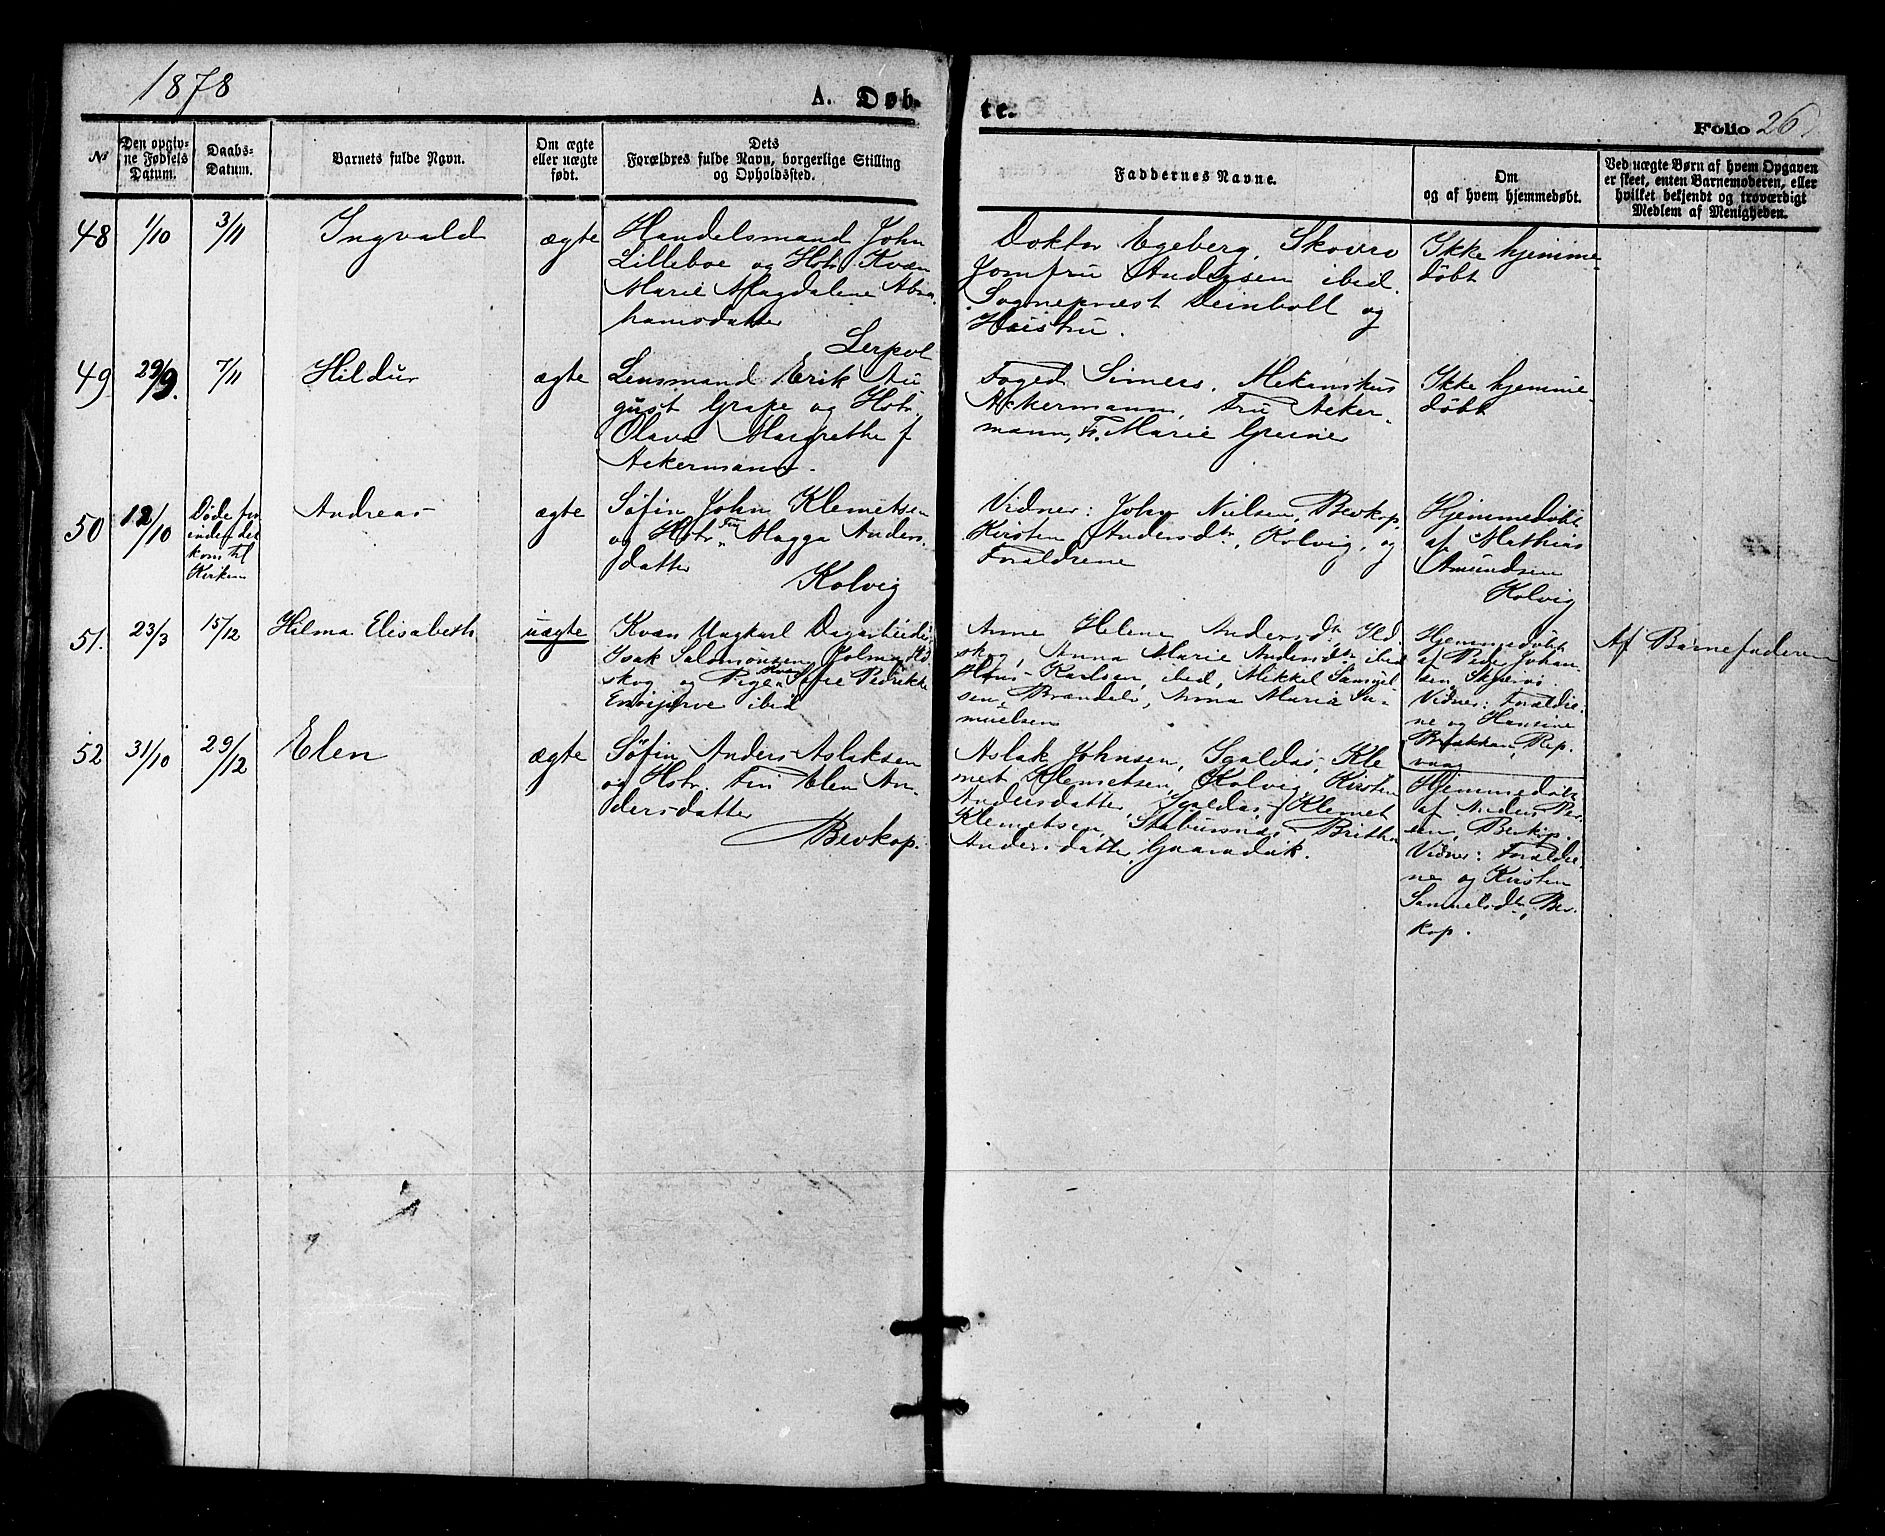 1878
A. Døb-
te.
Folio 26
№
Den opgiv-
ne Fødsels
Datum.
Daabs-
Datum.
Barnets fulde Navn.
Om ægte
eller uægte
født.
Dets
Forældres fulde Navn, borgerlige Stilling
og Opholdssted.
Faddernes Navne.
Om
og af hvem hjemmedøbt.
Ved uægte Børn af hvem Opgaven
er skeet, enten Barnemoderen, eller
hvilket bekjendt og troværdigt
Medlem af Menigheden.
48
1/10
3/11
Ingvald
ægte
Handelsmand John
Lilleboe og Hstr. Kvæn
Marie Magdalene Abra
hamsdatter
Doktor Egeberg, Skovro
Jomfru Andersen ibid.
Sognepræst Deinboll og
Hustru.
Ikke hjemme-
døbt
49
29/9.
7/11
Hildur
ægte
Leerpol
Lensmand Erik Au
gust Grape og Hstr.
Olava Margrethe f
Ackermann.
Foged Simers, Mekanikus
Ackermann, Fru Acker-
mann, Fr. Marie Greiner
Ikke hjemme-
døbt
50
12/10
Døde for
inden det
kom til
Kirken
Andreas
ægte
Søfin John Klemetsen
og Hstr. Fin Magga Anders
datter
Kolvig
Vidner: John Nielsen, Bevkop,
Kirsten Andersdtr, Kolvig, og
Forældrene
Hjemmedøbt
af Mathias
Amundsen
Kolvig
51.
23/3
15/12
Hilma Elisabeth
uægte
Kvæn Ungkarl Dagarbeider
Isak Salomonsen
skog og Pige Kvæn Sofie Pedrikke
ibid
Anne Helene Andersdtr Ild
skog, Anna Marie Andersdtr ibid
Hans Karlsen, ibid, Mikkel Samuel
sen, Brændelv, Anna Maria Sa-
muelsen
Hjemmedøbt
af Peder Johan
sen, Skjervø.
Vidner: Forældre-
ne og Hansine
Rep
vaag
Af Barnefaderen
52
31/10
29/12
Elen
ægte
Søfin Anders Aslaksen
og Hstr. Fin Elen An
dersdatter
Bevkop.
Aslak Johnsen, Igaldas, Kle
met Klemetsen, Kolvig, Kirsten
Andersdatter, Igaldas, Klemet
Klemetsen, Stabursnæs, Britha
Andersdatter,
Hjemmedøbt
af Anders Per
sen, Bevkop.
Vidner: Forældre-
ne og Kirsten
Samuelsdtr, Bev-
kop.